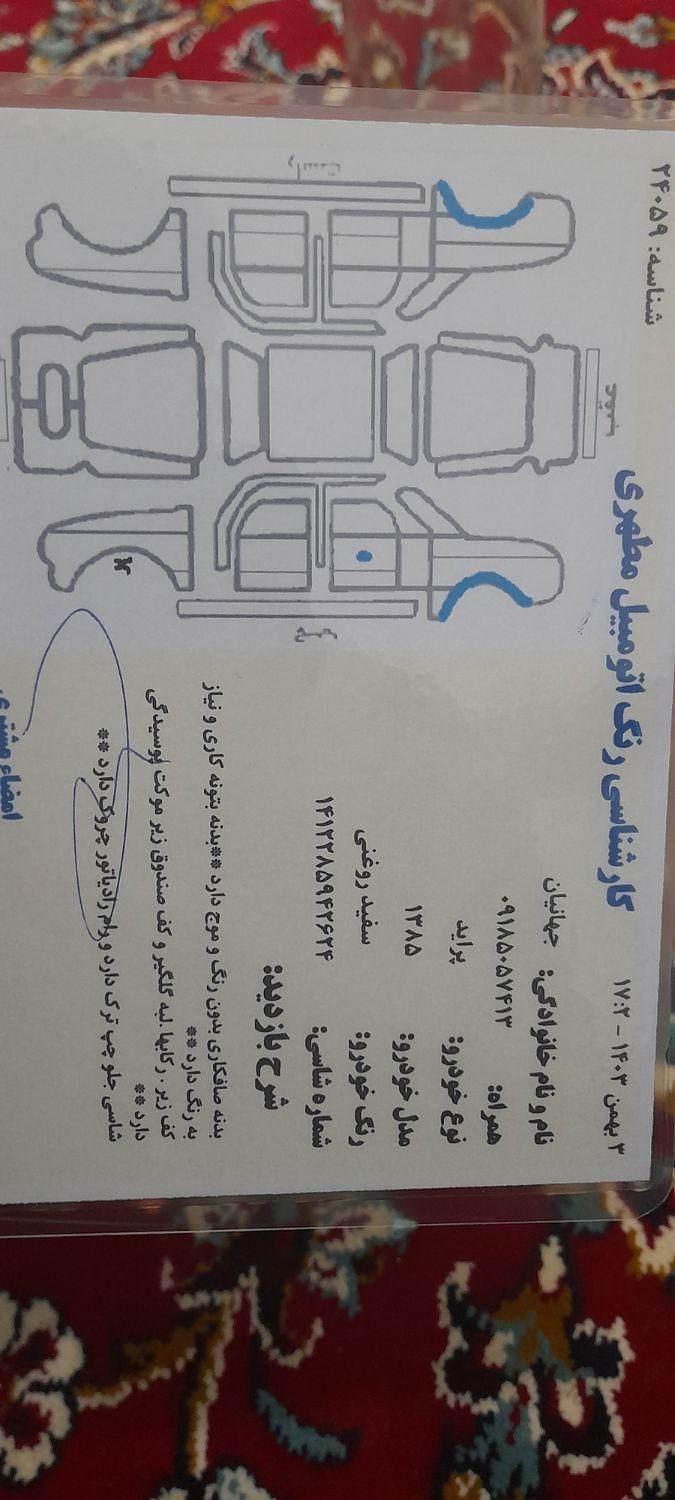 ۳ بهمن ۱۴۰۳ - ۱۷:۲
کارشناسی رنگ اتومبیل مطهری
شناسه: ۲۴۰۵۹
نام و نام خانوادگی: جهانیان
همراه: ۰۹۱۸۵۰۵۷۴۱۳
نوع خودرو: پراید
مدل خودرو: ۱۳۸۵
رنگ خودرو: سفید روغنی
شماره شاسی: ۱۴۱۲۲۸۵۹۴۲۶۲۴
شرح بازدید:
بدنه صافکاری بدون رنگ و موج دارد **بدنه بتونه کاری و نیاز
به رنگ دارد **
کف زیر ، رکابها .لبه گلگیر و کف صندوق زیر موکت پوسیدگی
دارد **
شاسی جلو چپ ترک دارد و رام رادیاتور چروک دارد **
امضاء مشتری
راست
چپ